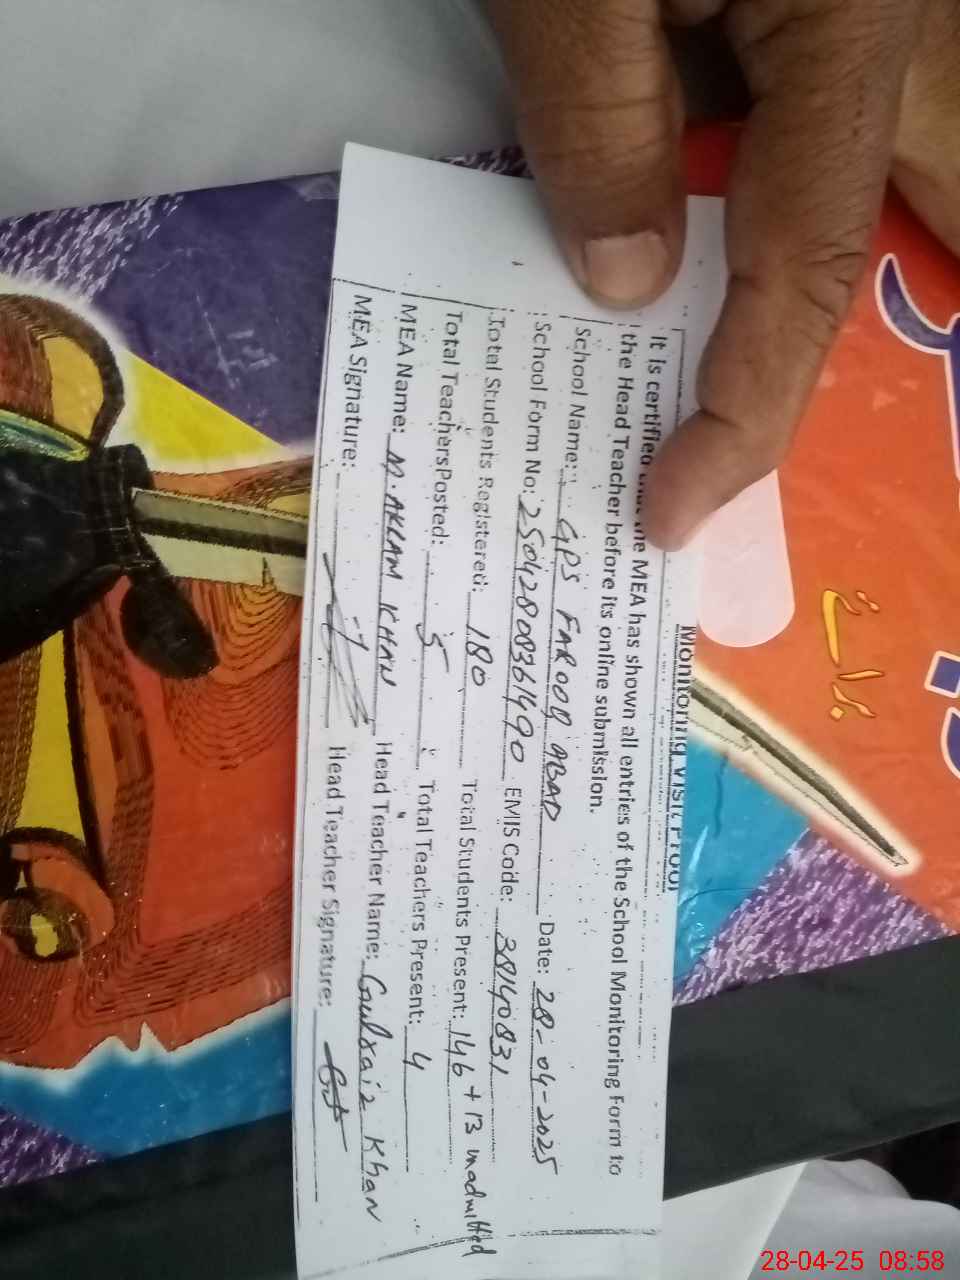 Monitoring Visit Proof
It is certified that the MEA has shown all entries of the School Monitoring Form to
the Head Teacher before its online submission.
School Name: GPS FAROOQ ABAD Date: 28-04-2025
School Form No: 25042808361490 EMIS Code: 38140831
Total Students Registered: 180 Total Students Present: 146 + 13 unadmitted
Total Teachers Posted: 5 Total Teachers Present: 4
MEA Name: M. AKRAM KHAN Head Teacher Name: Gulxaiz Khan
MEA Signature: Head Teacher Signature:
برائے
28-04-25 08:58